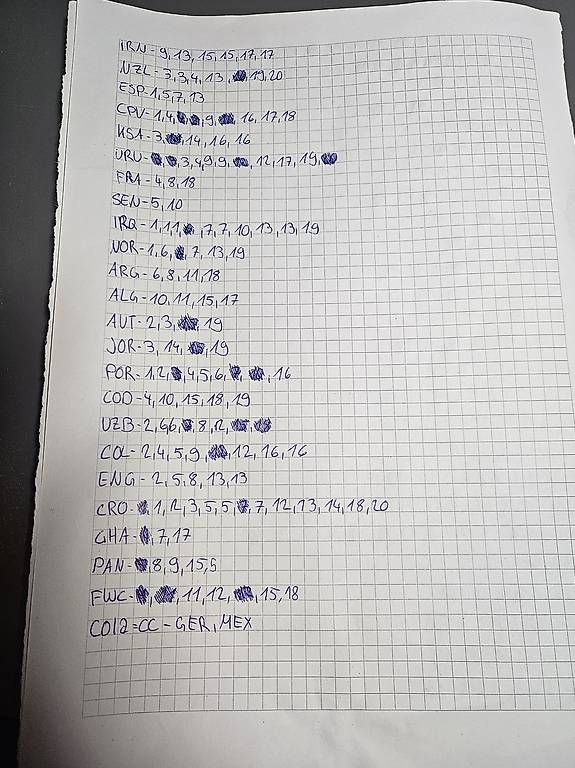 IRN-9,13,15,15,17,17
NZL-3,3,4,13, 19,20
ESP-1,5,7,13
CPV-1,4, 9, 16,17,18
KSA-3, 14,16,16
URU- 3,4,9,9, 12,17,19,
FRA-4,8,18
SEN-5,10
IRQ-1,1,1, ,7,7,10,13,13,19
NOR-1,6, 7,13,19
ARG-6,8,11,18
ALG-10,11,15,17
AUT-2,3, 19
JOR-3,14, ,19
POR-1,2, 4,5,6, , ,16
COD-4,10,15,18,19
UZB-2,6,6, ,8,12, ,
COL-2,4,5,9, ,12,16,16
ENG-2,5,8,13,13
CRO- ,1,2,3,5,5, ,7,12,13,14,18,20
GHA- ,7,17
PAN- 8,9,15,5
FWC- , ,11,12, ,15,18
COLA=CC-GER,MEX